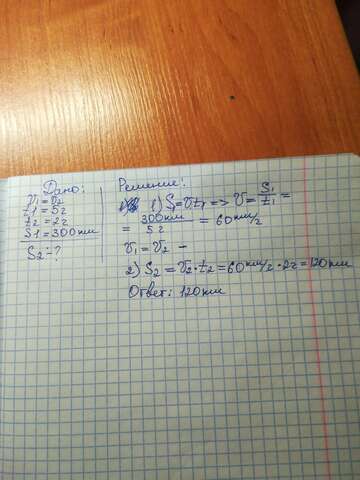 Дано:
V₁ = V₂
t1 = 5ч
t2 = 2ч
S1 = 300км
S₂ - ?
Решение:
1) S₁ = Vt₁ => V = S₁/t₁ =
= 300км/5ч = 60 км/ч
V₁ = V₂ –
2) S₂ = V₂ · t₂ = 60 км/ч · 2ч = 120км
Ответ: 120км